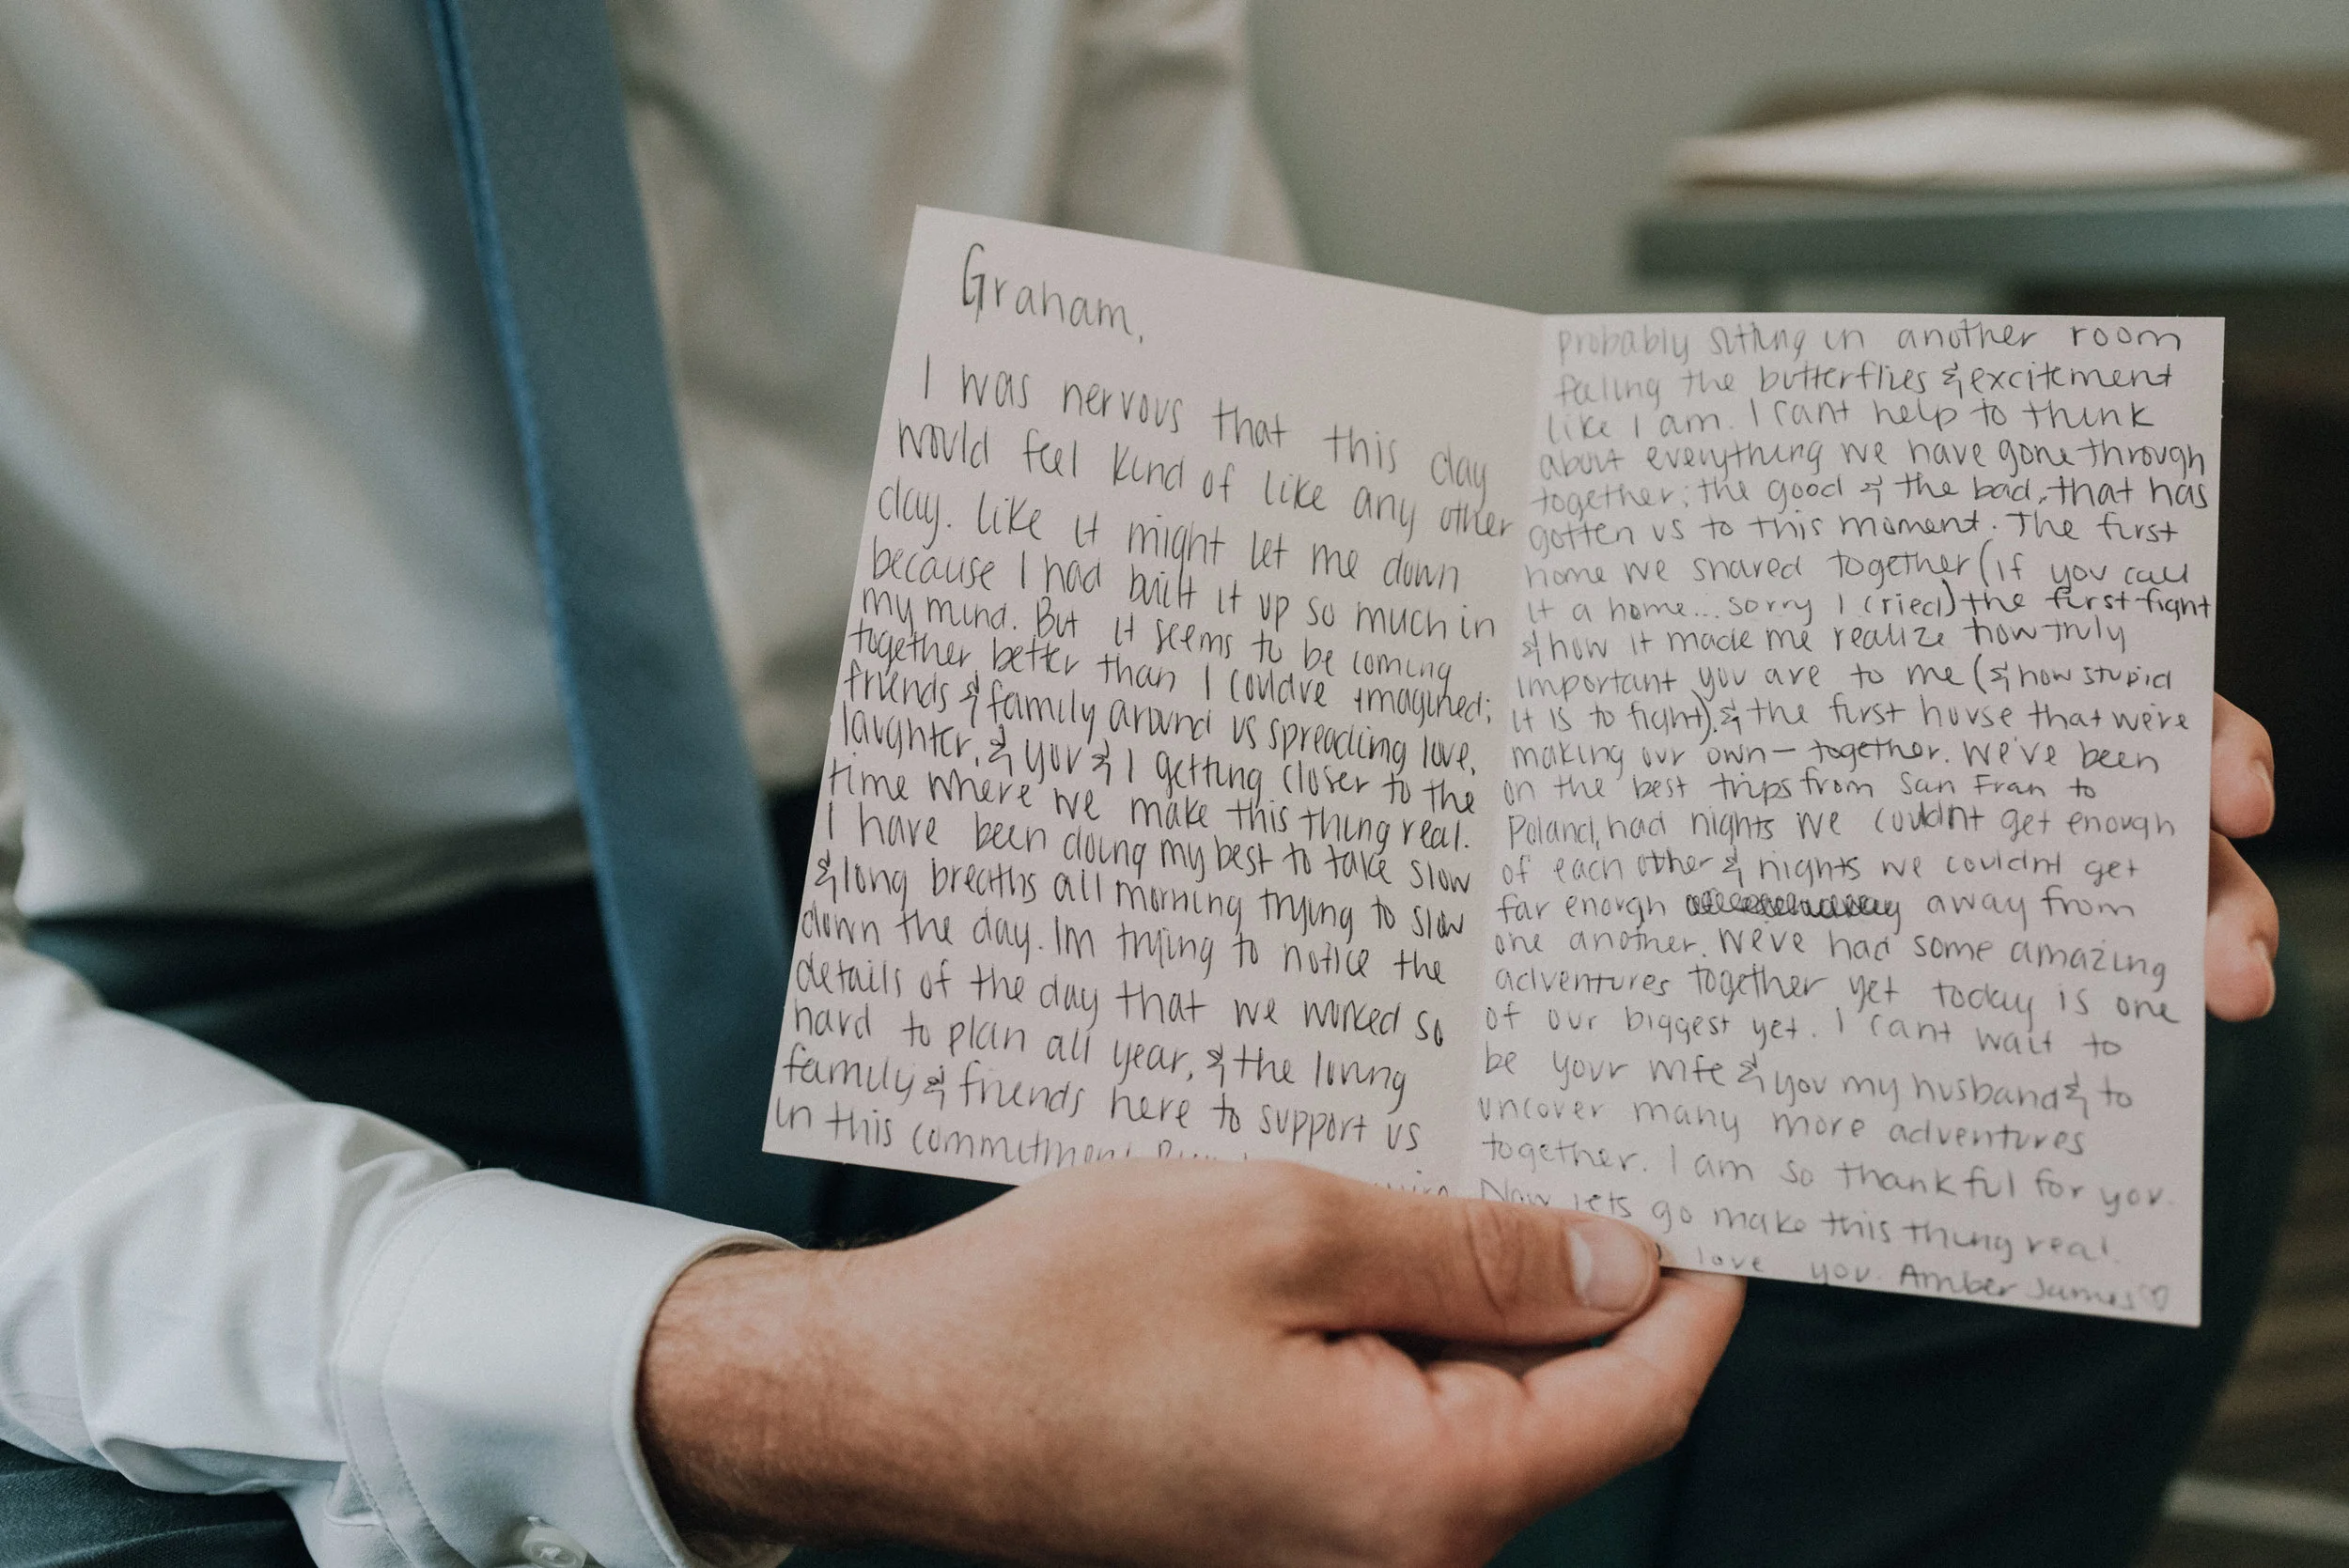 Graham,
I was nervous that this day
would feel kind of like any other
day. Like it might let me down
because I had built it up so much in
my mind. But it seems to be coming
together better than I couldve imagined;
friends & family around us spreading love,
laughter, & you & I getting closer to the
time where we make this thing real.
I have been doing my best to take slow
& long breaths all morning trying to slow
down the day. Im trying to notice the
details of the day that we worked so
hard to plan all year, & the loving
family & friends here to support us
in this commitment
probably sitting in another room
feeling the butterflies & excitement
like I am. I cant help to think
about everything we have gone through
together; the good & the bad, that has
gotten us to this moment. The first
home we shared together (if you call
it a home... sorry I cried) the first fight
& how it made me realize how truly
important you are to me (& how stupid
it is to fight). & the first house that we're
making our own - together. We've been
on the best trips from San Fran to
Poland, had nights we couldnt get enough
of each other & nights we couldnt get
far enough away from
one another. Weve had some amazing
adventures together yet today is one
of our biggest yet. I cant wait to
be your wife & you my husband & to
uncover many more adventures
together. I am so thankful for you.
Now lets go make this thing real.
love you. Amber James ♡